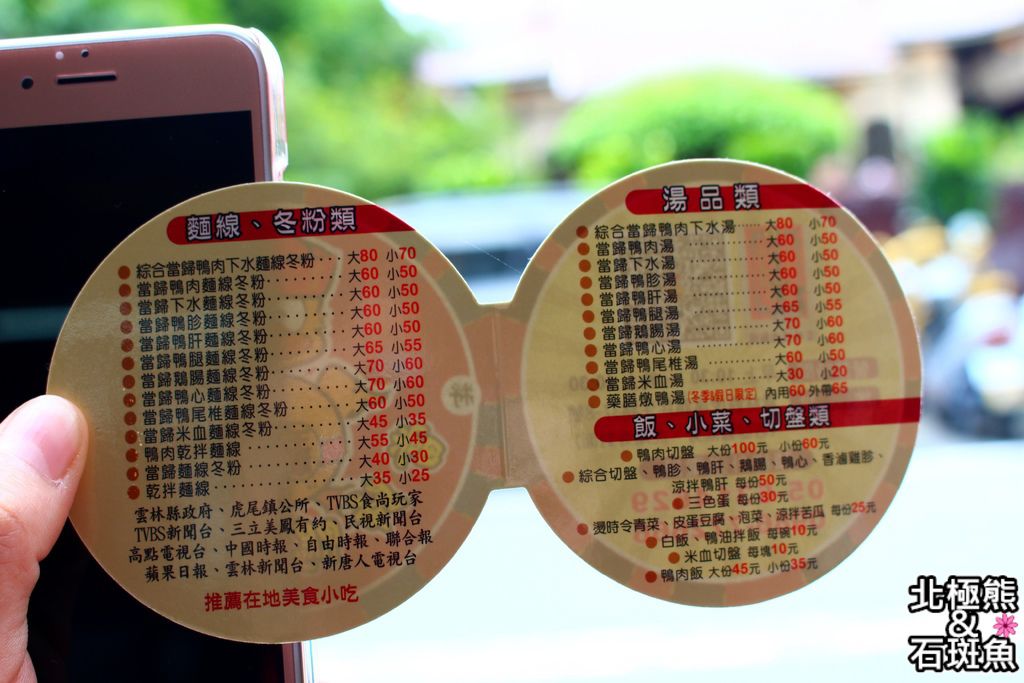 麵線、冬粉類
綜合當歸鴨肉下水麵線冬粉‥‥大80 小70
當歸鴨肉麵線冬粉‥‥‥‥大60 小50
當歸下水麵線冬粉‥‥‥‥大60 小50
當歸鴨胗麵線冬粉‥‥‥‥大60 小50
當歸鴨肝麵線冬粉‥‥‥‥大60 小50
當歸鴨腿麵線冬粉‥‥‥‥大65 小55
當歸鵝腸麵線冬粉‥‥‥‥大70 小60
當歸鴨心麵線冬粉‥‥‥‥大70 小60
當歸鴨尾椎麵線冬粉‥‥‥大60 小50
當歸米血麵線冬粉‥‥‥‥大45 小35
鴨肉乾拌麵線‥‥‥‥大55 小45
當歸麵線冬粉‥‥‥‥大40 小30
乾拌麵線‥‥‥‥大35 小25
雲林縣政府、虎尾鎮公所、TVBS食尚玩家
TVBS新聞台、三立美鳳有約、民視新聞台
高點電視台、中國時報、自由時報、聯合報
蘋果日報、雲林新聞台、新唐人電視台
推薦在地美食小吃
湯品類
綜合當歸鴨肉下水湯‥‥大80 小70
當歸鴨肉湯‥‥‥‥大60 小50
當歸下水湯‥‥‥‥大60 小50
當歸鴨胗湯‥‥‥‥大60 小50
當歸鴨肝湯‥‥‥‥大60 小50
當歸鴨腿湯‥‥‥‥大65 小55
當歸鵝腸湯‥‥‥‥大70 小60
當歸鴨心湯‥‥‥‥大70 小60
當歸鴨尾椎湯‥‥‥大60 小50
當歸米血湯‥‥‥‥大30 小20
藥膳燉鴨湯(冬季&假日限定) 內用60 外帶65
飯、小菜、切盤類
鴨肉切盤 大份100元 小份60元
綜合切盤、鴨胗、鴨肝、鵝腸、鴨心、香滷雞胗、
涼拌鴨肝 每份50元
三色蛋 每份30元
燙時令青菜、皮蛋豆腐、泡菜、涼拌苦瓜 每份25元
白飯、鴨油拌飯 每碗10元
米血切盤 每塊10元
鴨肉飯 大份45元 小份35元
北極熊
&
石斑魚